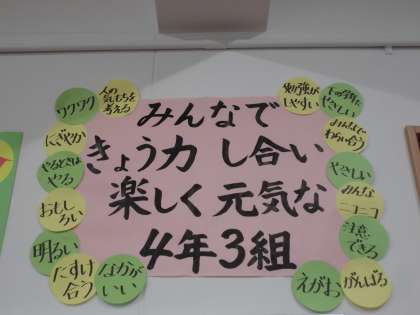 みんなで
きょう力し合い
楽しく元気な
4年3組
ワクワク
人の
気もちを
考える
にぎやか
やるときは
やる
おもし
ろい
明るい
たすけ
合う
なかが
いい
勉強が
しやすい
やさしい
みんなで
わらい合う
やさしい
みんな
ニコニコ
注意
できる
がんばる
えがお